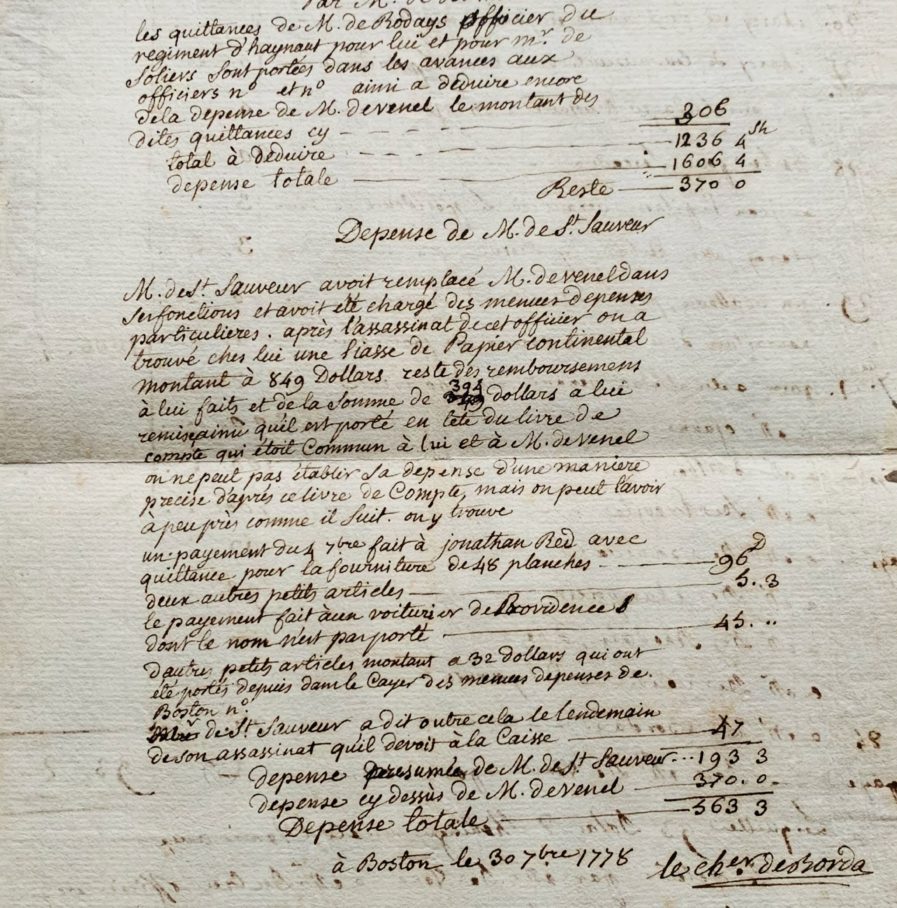 Par M. de
les quittances de M. de Rodays officier du
regiment d'haynaut pour lui et pour mr. de
Soliers sont portées dans les avances aux
officiers no et no ainsi a deduire encore
De la depense de M. de venel le montant des
Dites quittances cy 306
total à deduire 1236 4 sh
depense totale 1606 4
Reste 370 0
Depense de M. de St. Sauveur
M. de St. Sauveur avoit remplacé M. de venel dans
Ses fonctions et avoit été chargé des menues depenses
particulieres. après l'assassinat de cet officier on a
trouvé ches lui une liasse de Papier continental
montant à 849 Dollars reste des remboursemens
à lui faits et de la Somme de 394 dollars a lui
remise ainsi qu'il est porté en tête du livre de
compte qui étoit Commun à lui et à M. de venel
on ne peut pas établir sa depense d'une maniere
precise d'après ce livre de Compte, mais on peut l'avoir
à peu près comme il suit. on y trouve
un payement du 4 7bre fait à jonathan Red avec
quittance pour la fourniture de 48 planches 96 D
deux autres petits articles 5. 3
le payement fait à un voiturier de Providence
dont le nom n'est pas porté 45. ..
D'autres petits articles montant a 32 dollars qui ont
été portés depuis dans le Cayer des menues depenses de
Boston no.
Mr de St. Sauveur a dit outre cela le lendemain
de son assassinat qu'il devoit à la Caisse 47
depense presumée de M. de St. Sauveur 193 3
depense cy dessus de M. de venel 370. 0
Depense totale 563 3
à Boston le 30 7bre 1778 le cher. de Borda